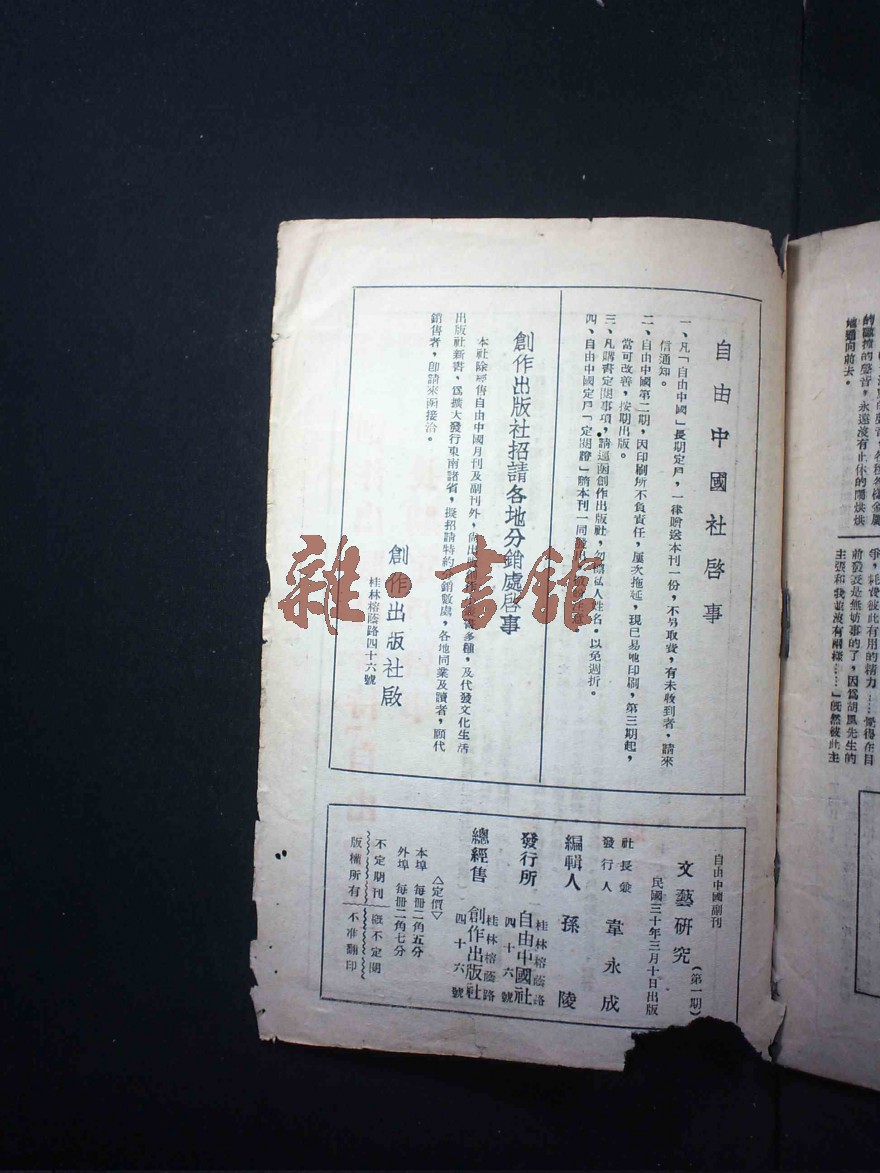 自由中國社啓事
一、凡「自由中國」長期定戶，一律贈送本刊一份，不另取費，有未收到者，請來
信通知。
二、自由中國第二期，因印刷所不負責任，屢次拖延，現已易地印刷，第三期起，
當可改善，按期出版。
三、凡購書定閱事項，請逕函創作出版社，勿寫私人姓名，以免週折。
四、自由中國定戶「定閱證」隨本刊一同
創作出版社招請各地分銷處啓事
本社除經售自由中國月刊及副刊外，尚出版 多種，及代發文化生活
出版社新書，爲擴大發行東南諸省，擬招請特約分銷數處，各地同業及讀者，願代
銷售者，卽請來函接洽。
創作出版社啟
桂林榕蔭路四十六號
自由中國副刊
文藝研究（第一期）
民國三十年三月十日出版
社長兼
發行人 韋永成
編輯人 孫陵
發行所 自由中國社
桂林榕蔭路
四十六號
總經售 創作出版社
桂林榕蔭路
四十六號
△定價▽
本埠 每冊二角五分
外埠 每冊二角七分
不定期刊 概不定閱
版權所有 不准翻印
雜·書館
的 聲音，永遠沒有止休的鬧烘烘
地通向前去。
爭，耗費彼此有用的精力……覺得在目
前發表是無妨事的了，因爲胡風先生的
主張和我並沒有兩樣……」既然彼此主